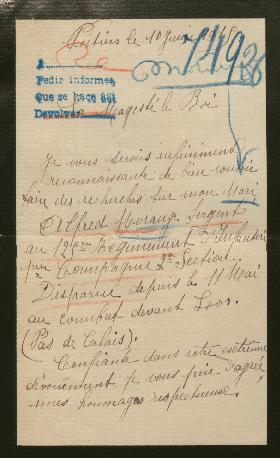 Poitiers le 10 Juin 1915
A
Pedir informes
Que se hace así
Devolver
Majesté le Roi
Je vous serais infiniment
reconnaissante de bien vouloir
faire des recherches sur mon Mari
Alfred Sergent
au Régiment d'Infanterie
Compagnie Section.
Disparue depuis le 11 Mai
au combat devant Loos.
(Pas de Calais).
Confiante dans votre extrême
dévouement je vous prie d'agréer
mes hommages respectueuse